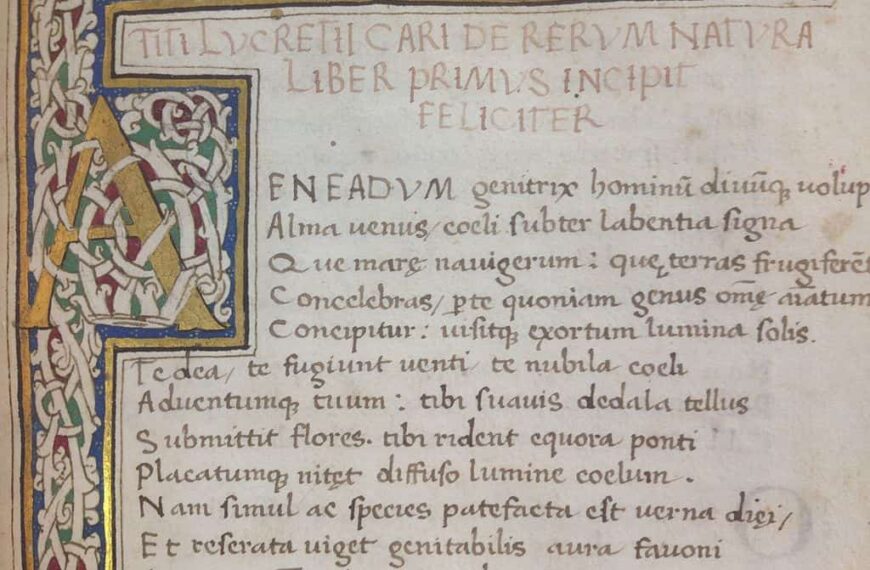 TITI LVCRETII CARI DE RERVM NATVRA
LIBER PRIMVS INCIPIT
FELICITER
AENEADVM genitrix hominū diuūq; uolup
Alma uenus/ coeli subter labentia signa
Que marę nauigerum: quę terras frugiferēt
Concelebras/ ꝑte quoniam genus omę aīatum
Concipitur: uisitq; exortum lumina solis.
Te dea/ te fugiunt uenti/ te nubila coeli
Aduentumq; tuum: tibi suauis dedala tellus
Submittit flores. tibi rident equora ponti
Placatumq; nitęt diffuso lumine coelum.
Nam simul ac species patefacta est uerna dięi/
Et reserata uiget genitabilis aura fauoni